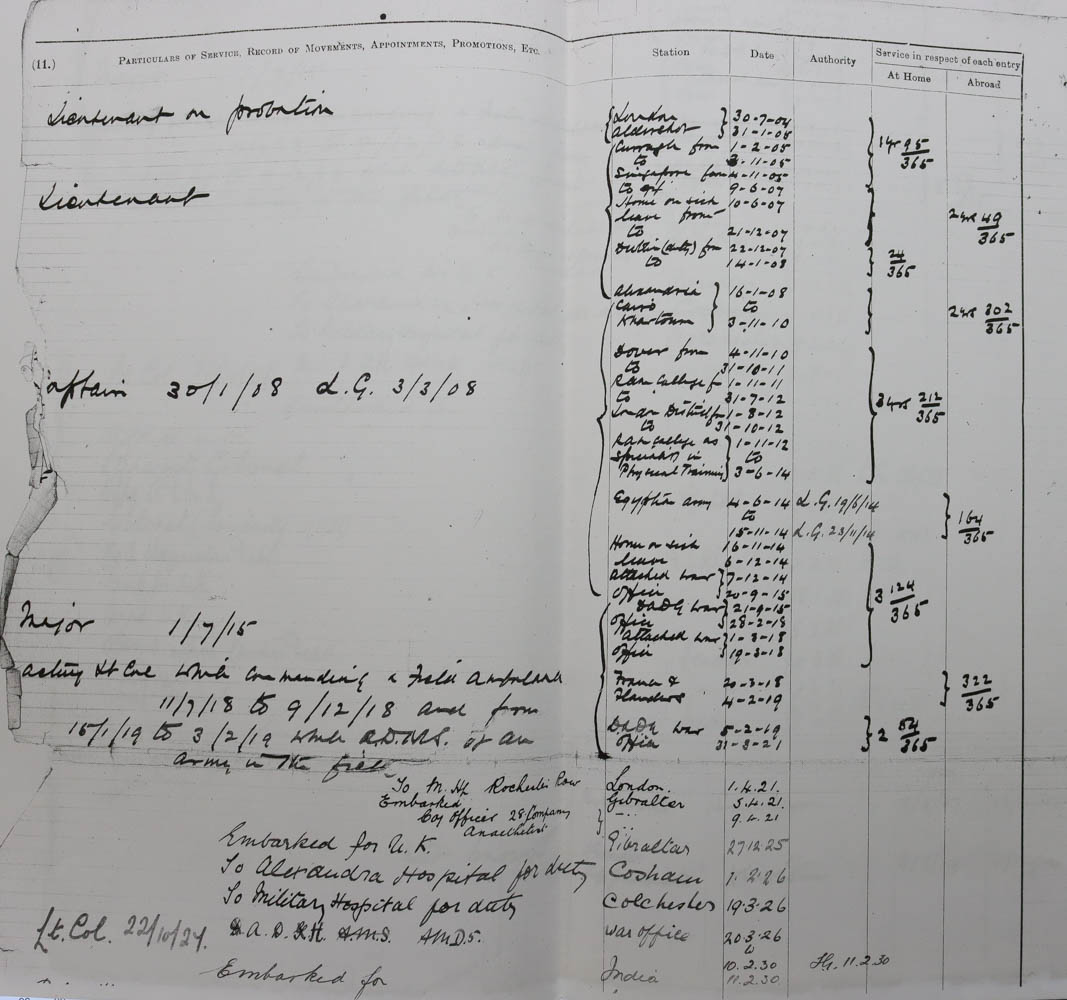 (11.) Particulars of Service, Record of Movements, Appointments, Promotions, Etc. Station Date Authority Service in respect of each entry
At Home Abroad
Lieutenant on probation
London 30-7-04
Aldershot 31-1-05
Curragh from 1-2-05 1 yr 95/365
to 3-11-05
Singapore from 4-11-05
to 9-6-07
Lieutenant
Home on sick 10-6-07
leave from 2 yrs 49/365
to 21-12-07
Dublin (duty) from 22-12-07
to 14-1-08 24/365
Alexandria 16-1-08
Cairo to 2 yrs 302/365
Khartoum 3-11-10
Dover from 4-11-10
to 31-10-11
Captain 30/1/08 L.G. 3/3/08
RAM College f 1-11-11
to 31-7-12 3 yrs 212/365
London District fm 1-8-12
to 31-10-12
RAM College as 1-11-12
specialist in to
Physical Training 3-6-14
Egyptian Army 4-6-14 L.G. 19/6/14
to 164/365
15-11-14 L.G. 23/11/14
Home on sick 16-11-14
leave 6-12-14
Attached War 7-12-14
Office 20-9-15 3 124/365
Major 1/7/15
DADG War 21-9-15
Office 28-2-18
Attached War 1-3-18
Office 19-3-18
Acting Lt Col while commanding a Field Ambulance
France & 20-3-18 322/365
Flanders 4-2-19
11/7/18 to 9/12/18 and from
15/1/19 to 3/2/19 while A.D.M.S. of an
DADG War 5-2-19 2 54/365
Office 31-3-21
Army in the field
To M. Hp Rochester Row London. 1.4.21.
Embarked Gibraltar 5.4.21.
Coy Officer 28 Company 9.4.21
Anaesthetist
Embarked for U.K. Gibraltar 27.12.25
To Alexandra Hospital for duty Cosham 7.2.26
To Military Hospital for duty Colchester 19.3.26
Lt. Col. 22/10/27. A.D. A.M.S. A.M.D.5. War Office 20.3.26
to
10.2.30 11.2.30
Embarked for India 11.2.30